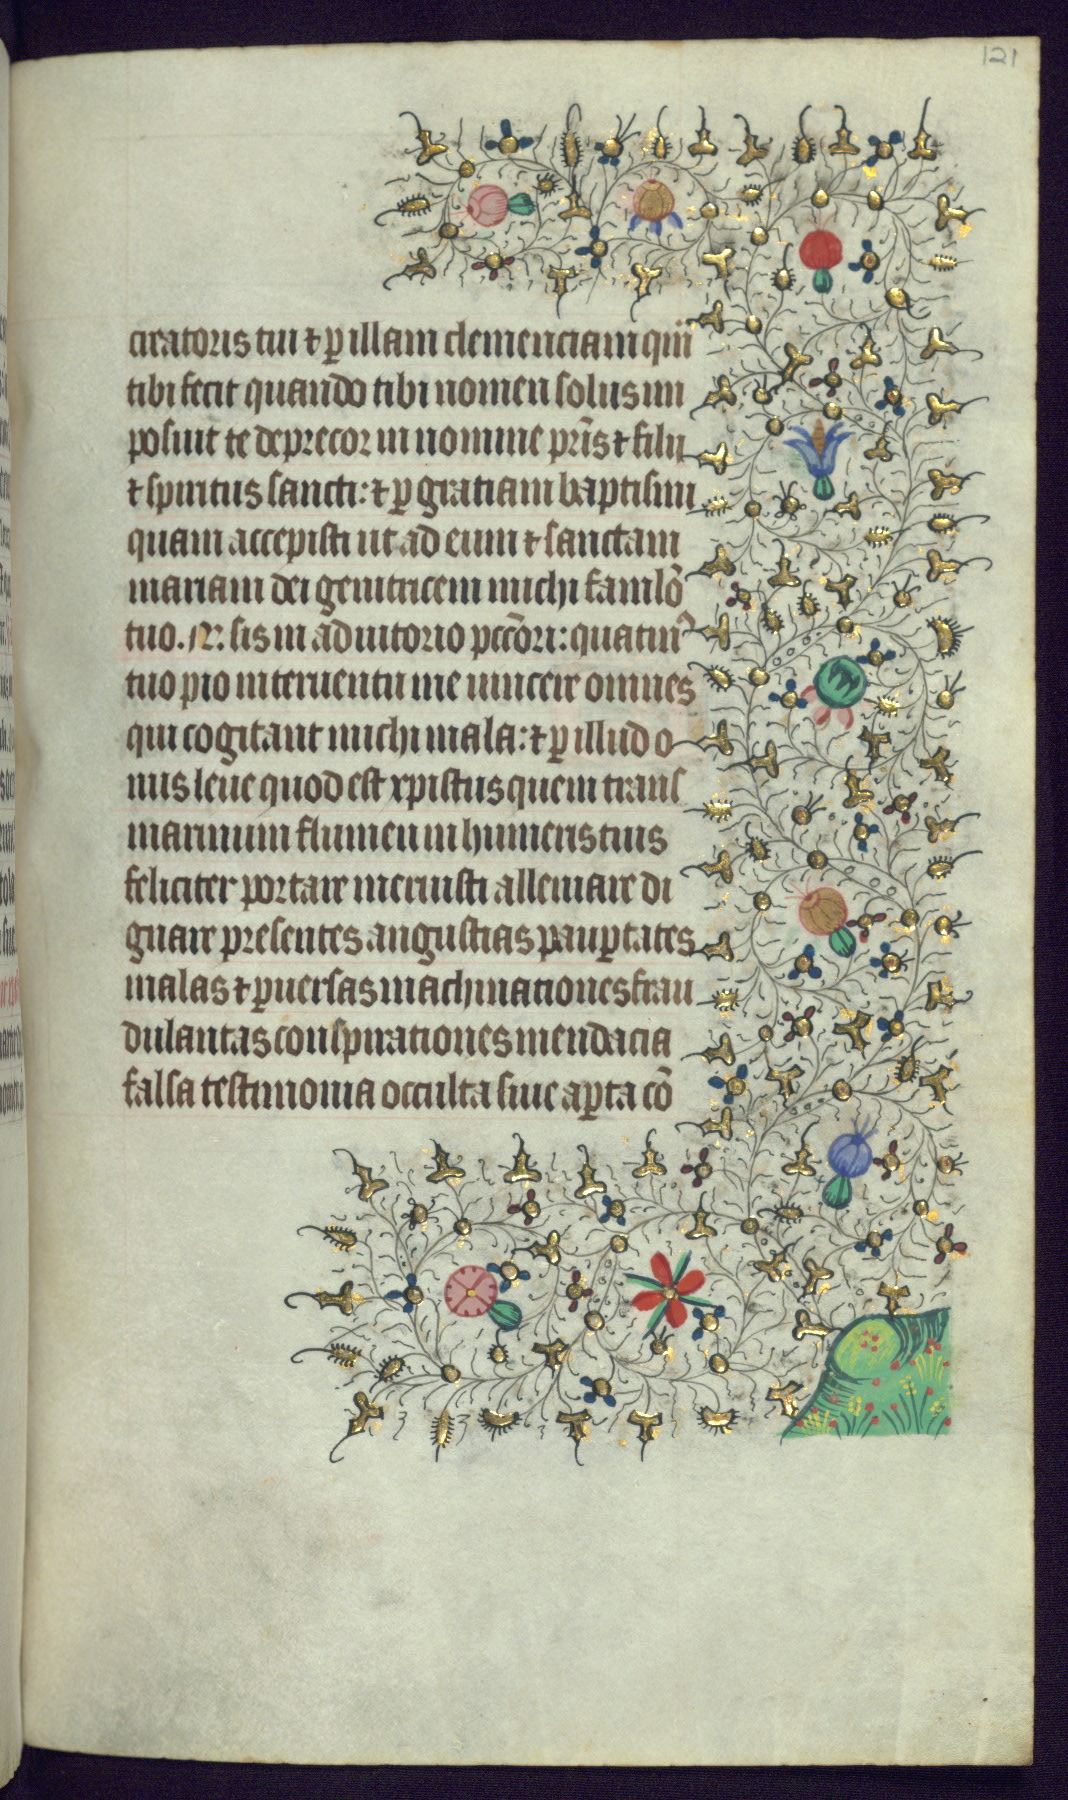 121
creatoris tui ⁊ p̱ illam clemenciam quā
tibi fecit quando tibi nomen solus im
posuit te deprecor in nomine pr̄is ⁊ filii
⁊ spiritus sancti: ⁊ p̱ gratiam baptismi
quam accepisti ut ad eum ⁊ sanctam
mariam dei genitricem michi famlō
tuo .N. sis in adiutorio pccōri: quatinꝰ
tuo pio interuentu me uincere omnes
qui cogitant michi mala: ⁊ p̱ illud o
nus leue quod est xpistus quem trans
marinum flumen in humeris tuis
feliciter portare meruisti alleuiare di
gnare presentes angustias paup̱tates
malas ⁊ p̱uersas machinationes frau
dulantas conspirationes mendacia
falsa testimonia occulta siue ap̱ta cō